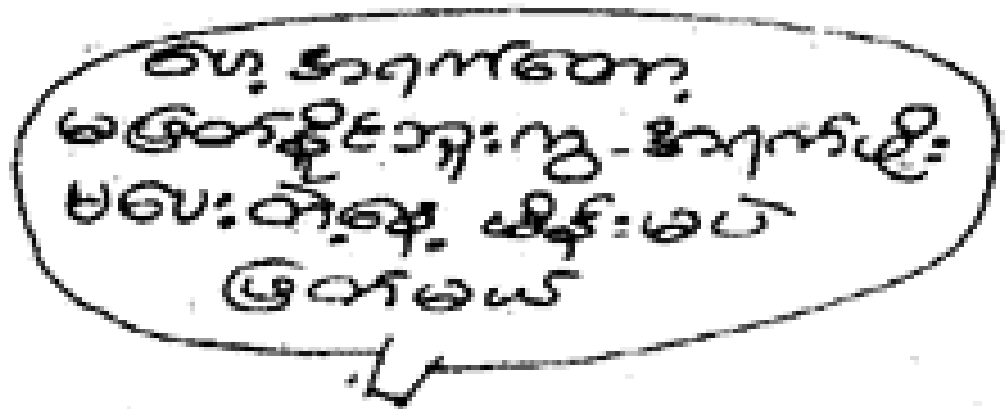 ဟေ့ အရက်တော့
မဖြတ်နိုင်ဘူးကွ - အရက်ဖိုး
မပေးတဲ့နေ့ မိန်းမပဲ
ဖြတ်မယ်